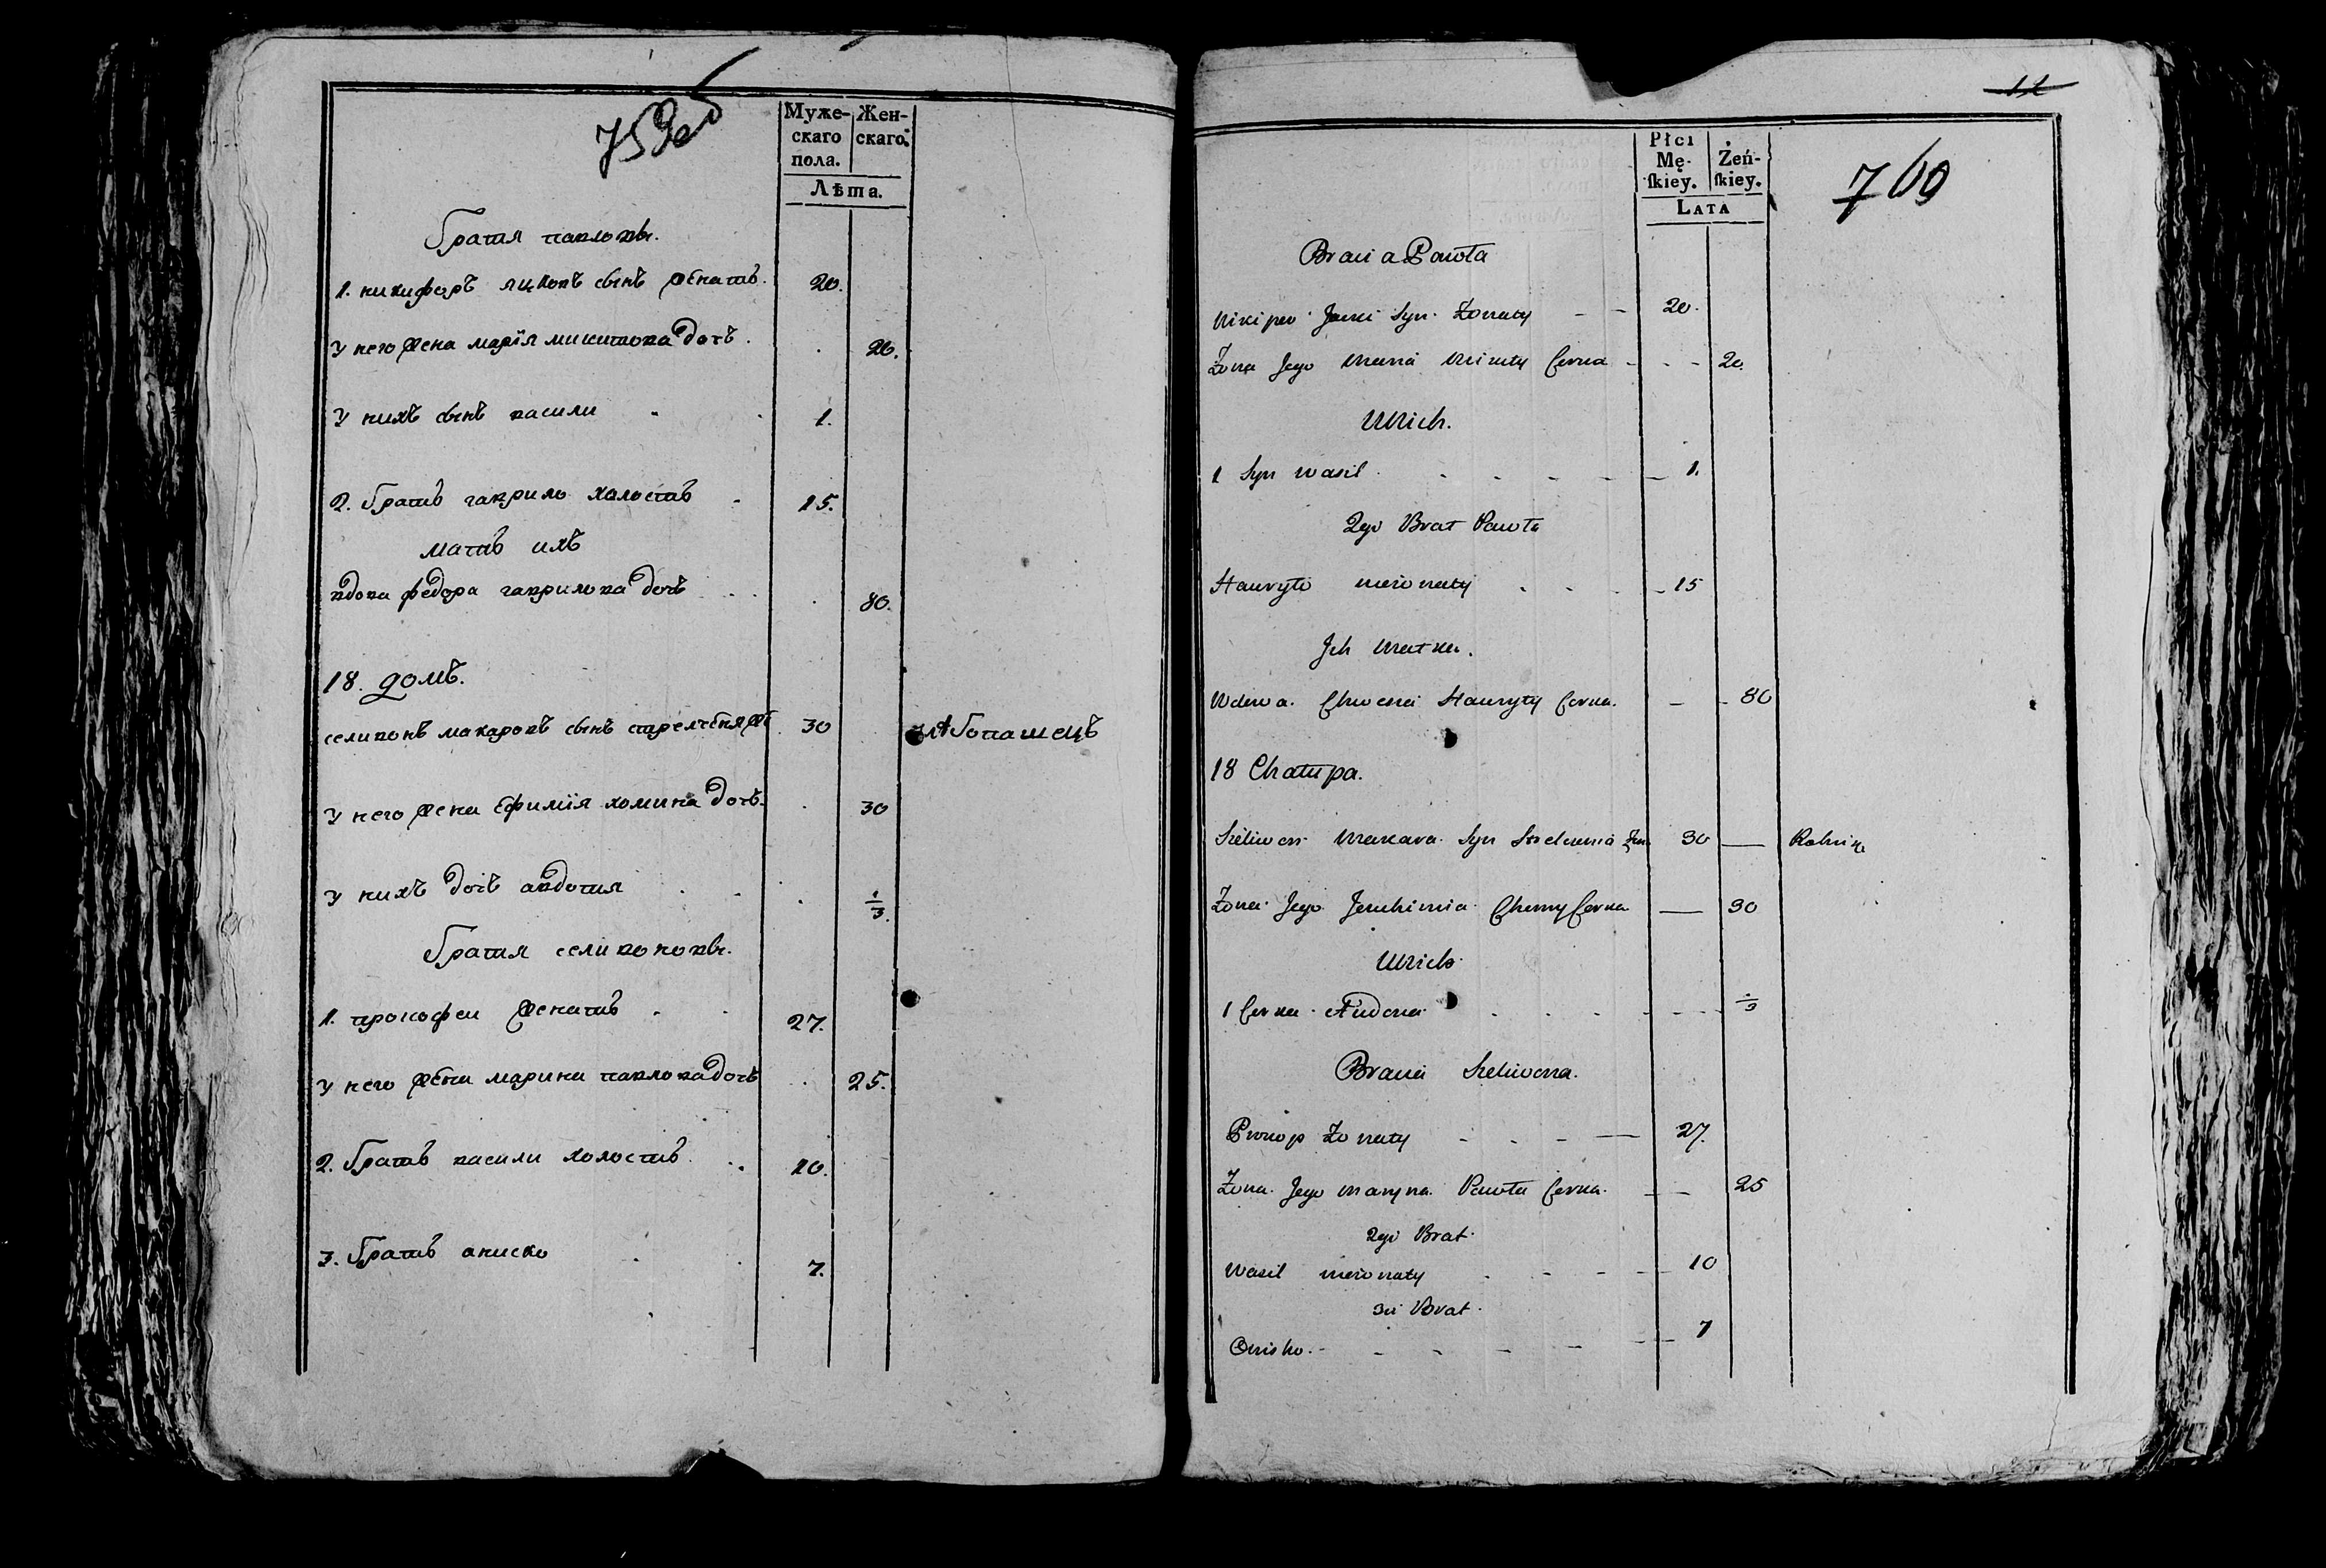 759об
Муже-
скаго
пола.
Жен-
скаго.
Лѣта.
братия павловы.
1. никифоръ яцковъ сынъ женатъ. 20.
у него жена марїя микитова дочь. 20.
у нихъ сынъ васили 1.
2. братъ гаврило холостъ 15.
мать ихъ
вдова федора гаврилова дочь 80.
18. домъ.
селивонъ макаровъ сынъ стрелченя 30 хлѣбопашецъ
у него жена Ефимїя хомина дочь. 30
у нихъ дочь авдотия 1/3.
братия селивоновы.
1. прокофеи женатъ 27.
у него жена марина павлова дочь 25.
2. братъ васили холостъ 10.
3. братъ аниско 7.
11
Płci
Mę-
ſkiey.
Żeń-
ſkiey.
LATA
760
Bracia Pawła
Nikipor Jacki Syn Żonaty 20.
Żona Jego Maria Mikity Corka 20.
U Nich.
1 Syn Wasil 1.
2gi Brat Pawła
Hawryło nieżonaty 15
Ich Matka.
Wdowa Hawryły Corka. 80
18 Chałupa.
Seliwon Makara Syn Strelczenia Żon 30 — Rolnik
Żona Jego Jeuchimia Chomy Corka — 30
U Nich
1 Corka Audocia 1/3
Bracia Seliwona.
Prokop Żonaty 27.
Żona Jego Maryna Pawła Corka. 25
2gi Brat
Wasil nieżonaty 10
3ci Brat
Onisko. 7